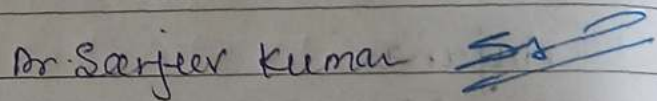 Dr. Sanjeev Kumar.